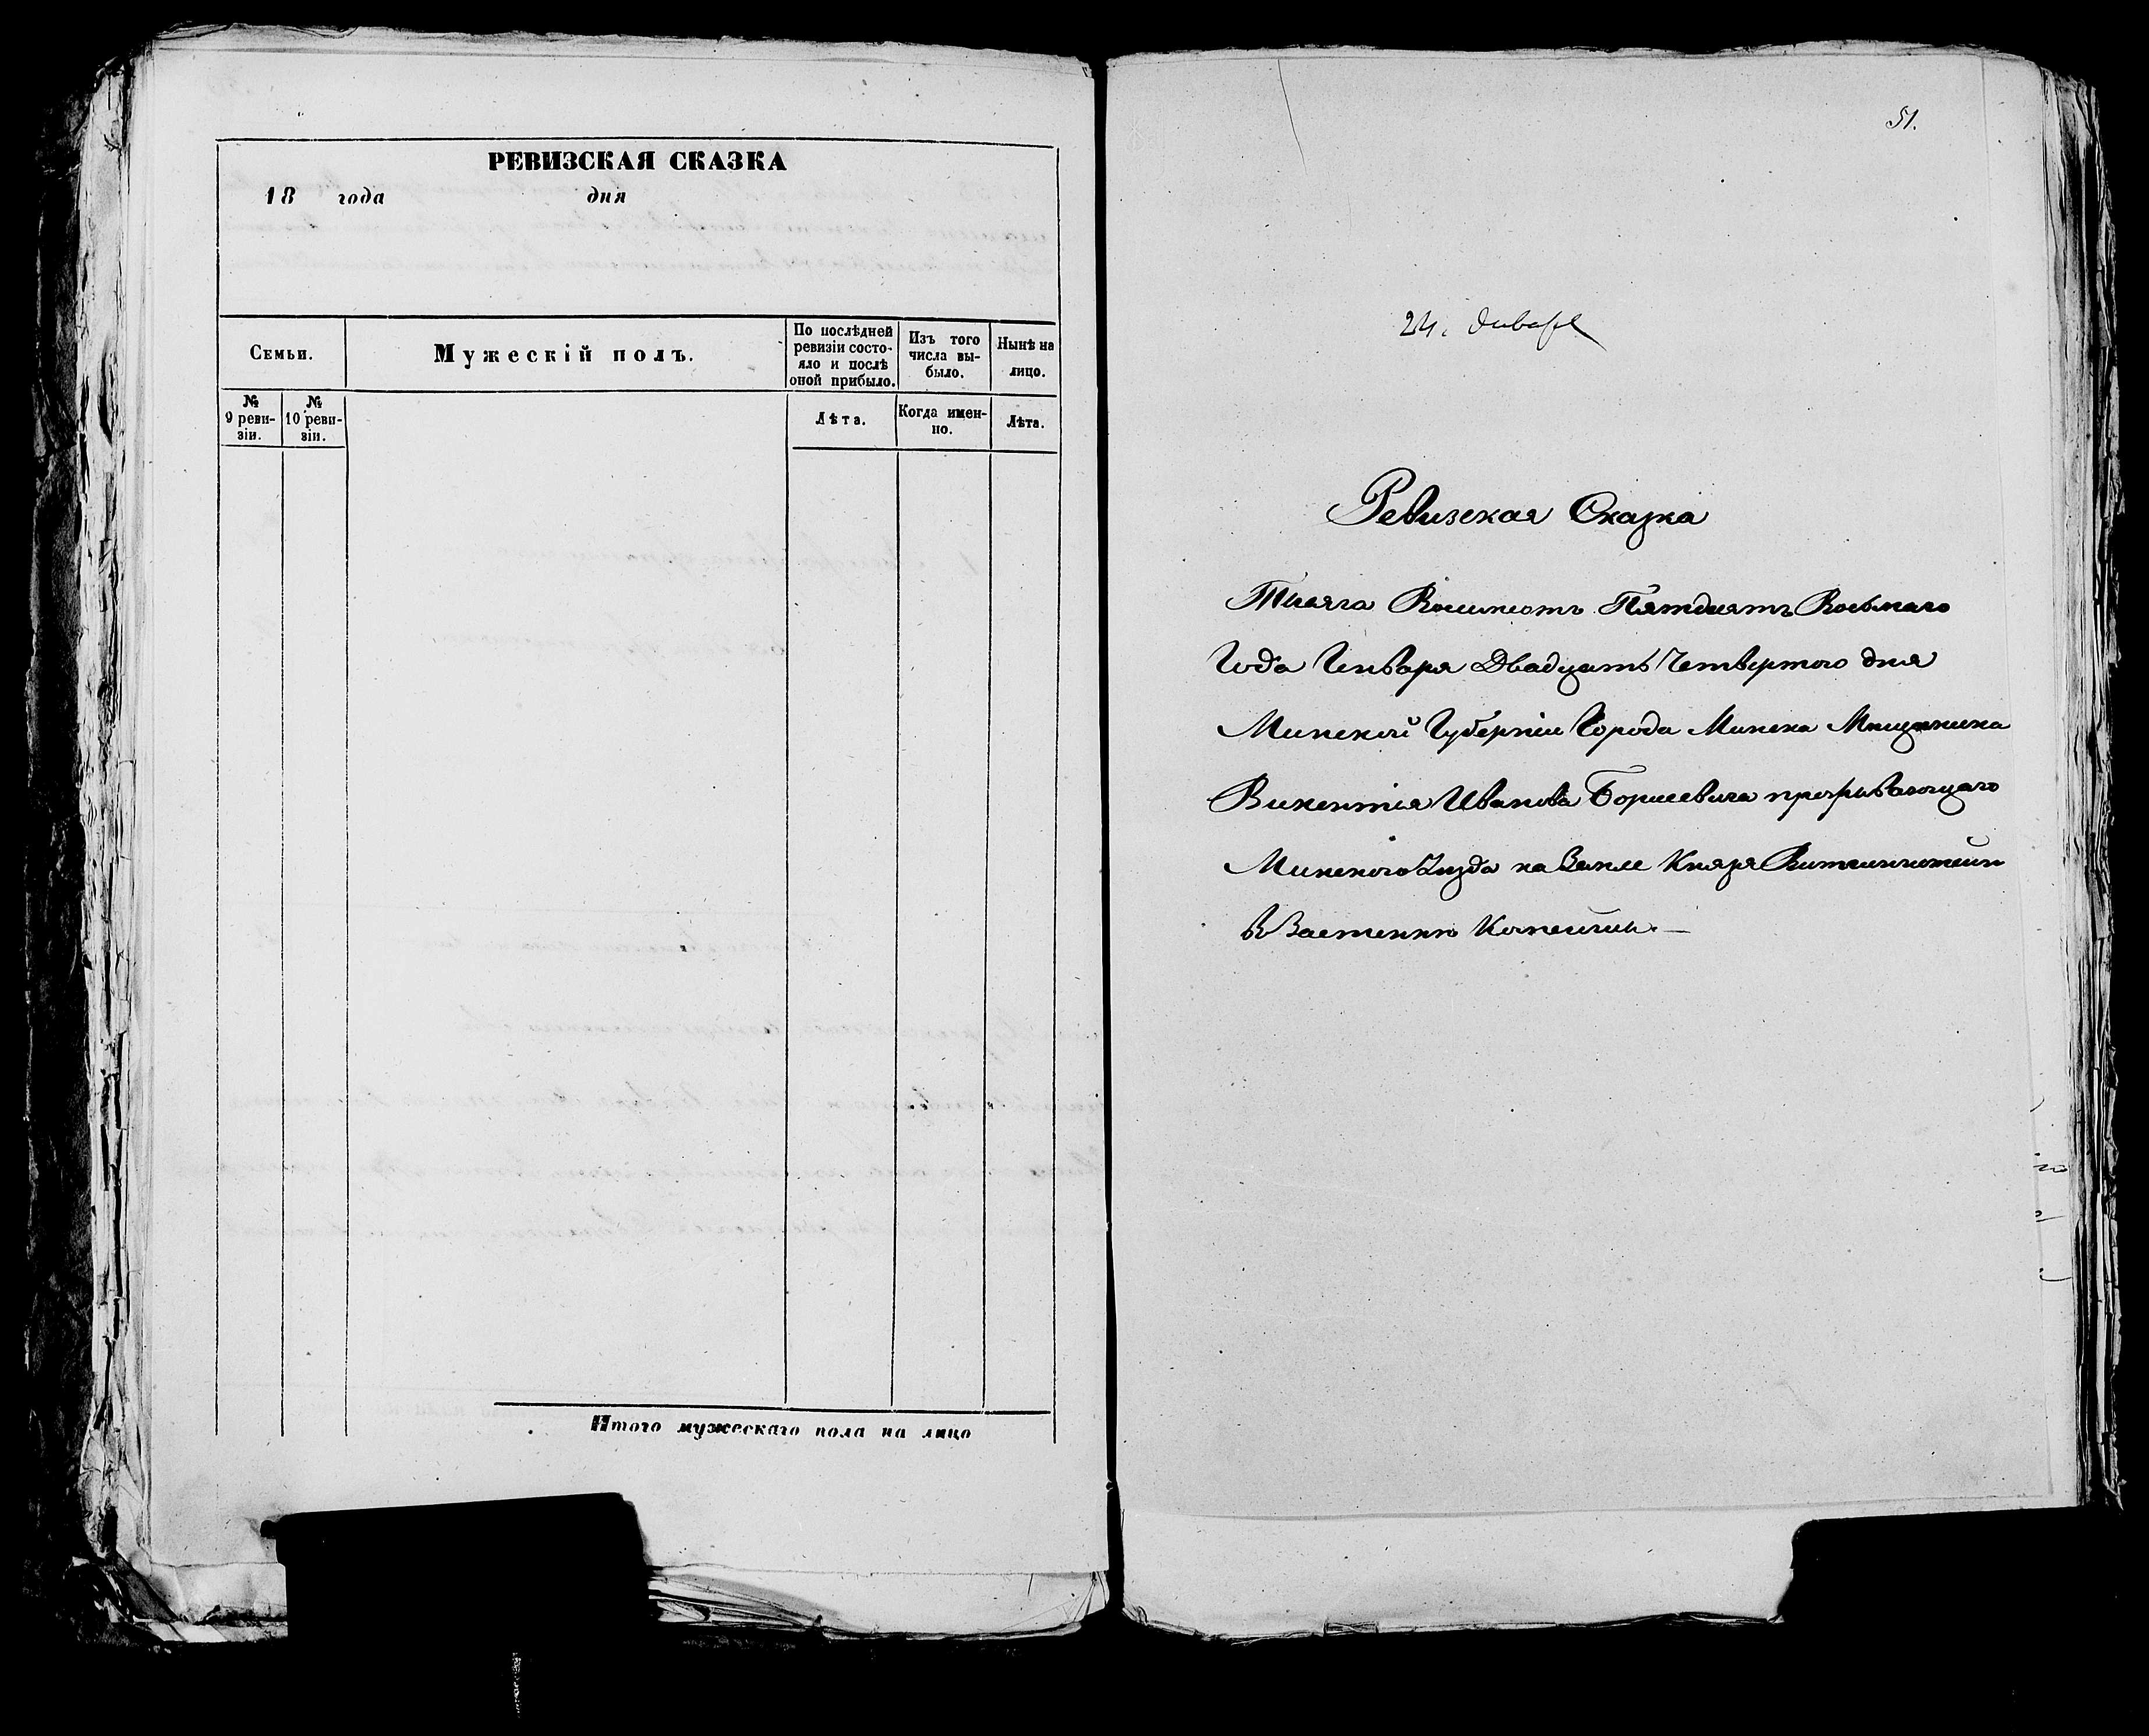 РЕВИЗСКАЯ СКАЗКА
18 года дня
Семьи.
Мужескій полъ.
По послѣдней ревизіи состояло и послѣ оной прибыло.
Изъ того числа выбыло.
Нынѣ на лицо.
№ 9 ревизіи.
№ 10 ревизіи.
Лѣта.
Когда именно.
Лѣта.
Итого мужескаго пола на лицо
51.
24. Января
Ревизская Сказка
Тысяга Восимсотъ Пятдисятъ Восьмаго
Года Генваря Двадцать Четвертого дня
Минской Губерніи Города Минска Мищанина
Викентія Иванова Борисевича прозывающаго
Минского Уизда на Земле Князя Витгинштейн
В Застенку